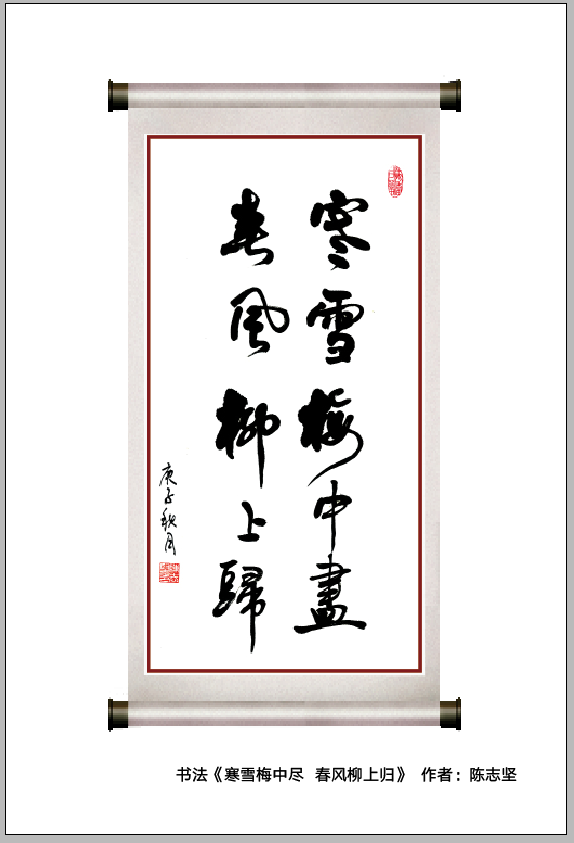 寒雪梅中盡
春風柳上歸
庚子秋月
书法《寒雪梅中尽 春风柳上归》 作者：陈志坚